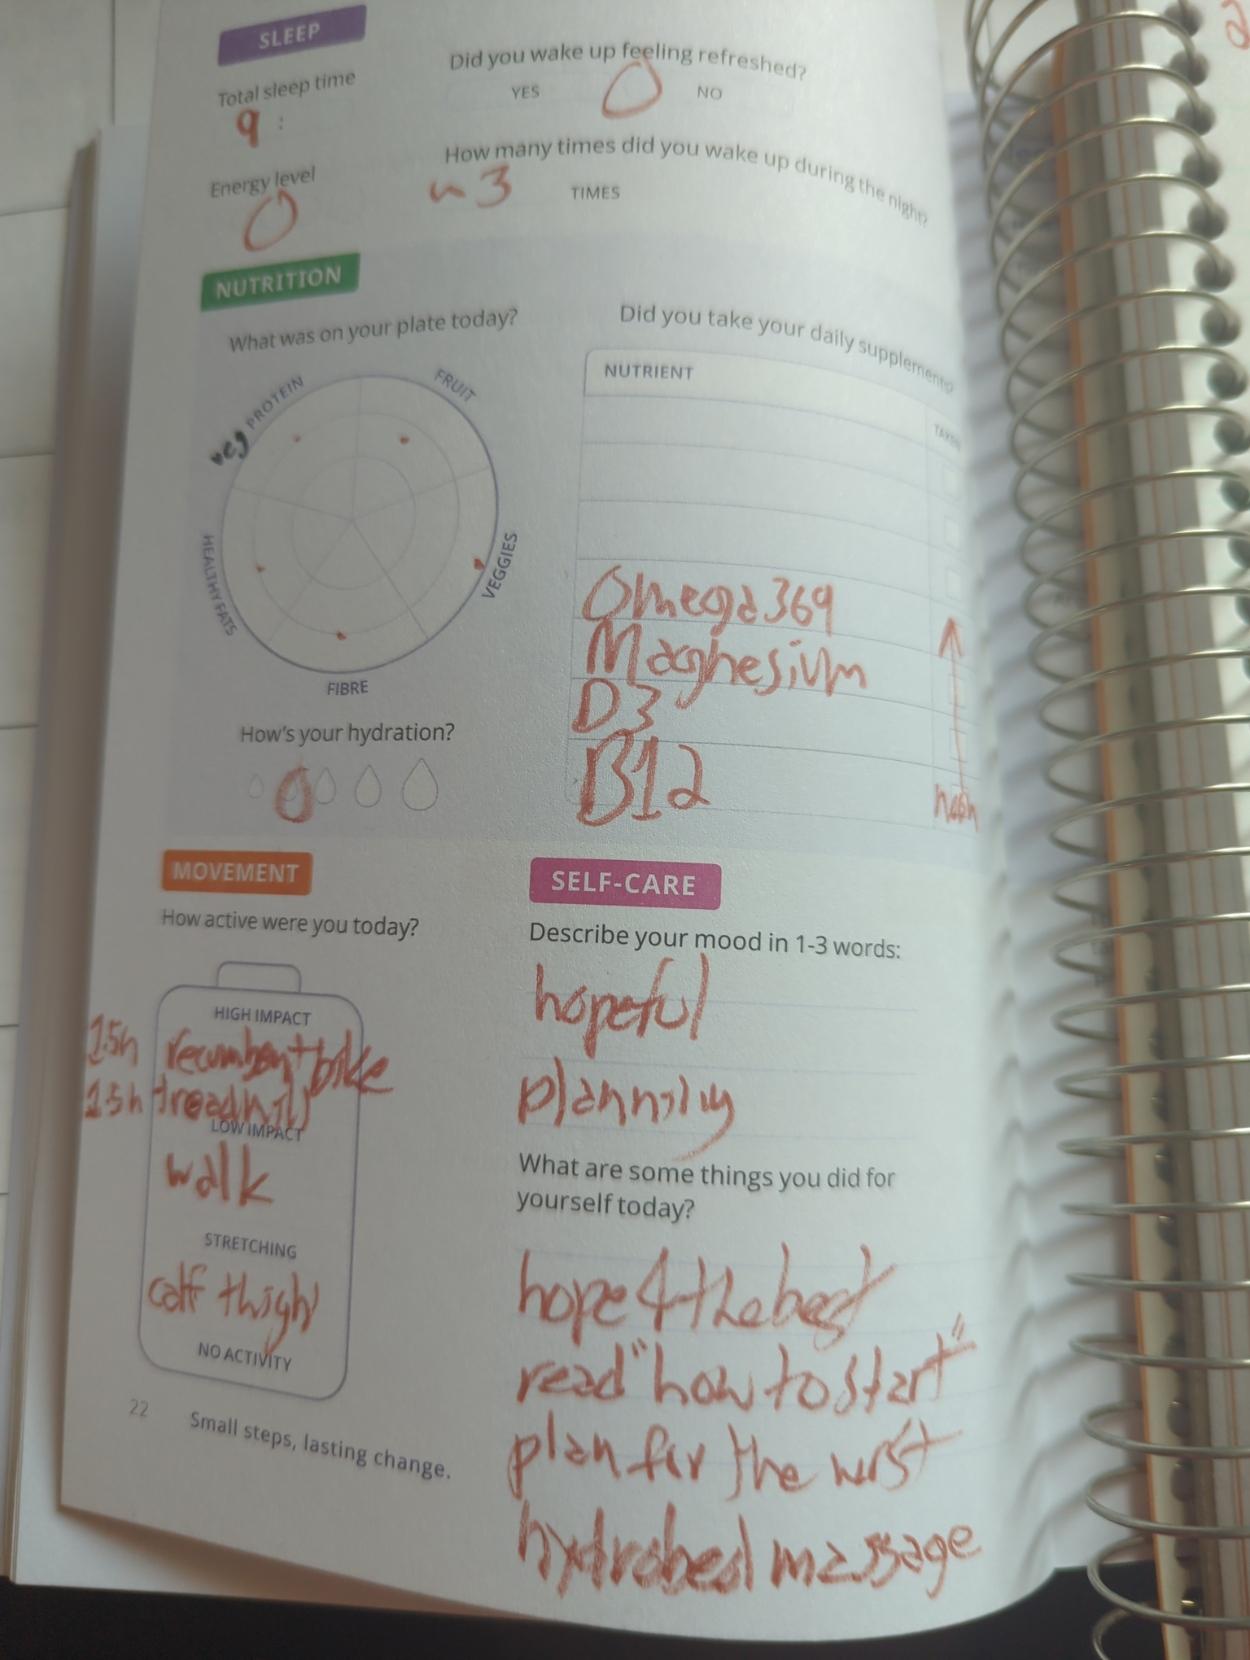 SLEEP
Total sleep time
9 :
Did you wake up feeling refreshed?
YES NO
Energy level
How many times did you wake up during the night?
~3 TIMES
NUTRITION
What was on your plate today?
veg PROTEIN
FRUIT
VEGGIES
FIBRE
HEALTHY FATS
How's your hydration?
Did you take your daily supplements?
NUTRIENT
Omega369
Magnesium
D3
B12
noon
MOVEMENT
How active were you today?
HIGH IMPACT
recumbent bike
treadmill
LOW IMPACT
walk
STRETCHING
calf thigh
NO ACTIVITY
SELF-CARE
Describe your mood in 1-3 words:
hopeful
planning
What are some things you did for
yourself today?
hope 4 the best
read "how to start"
plan for the worst
hydrobed massage
22 Small steps, lasting change.